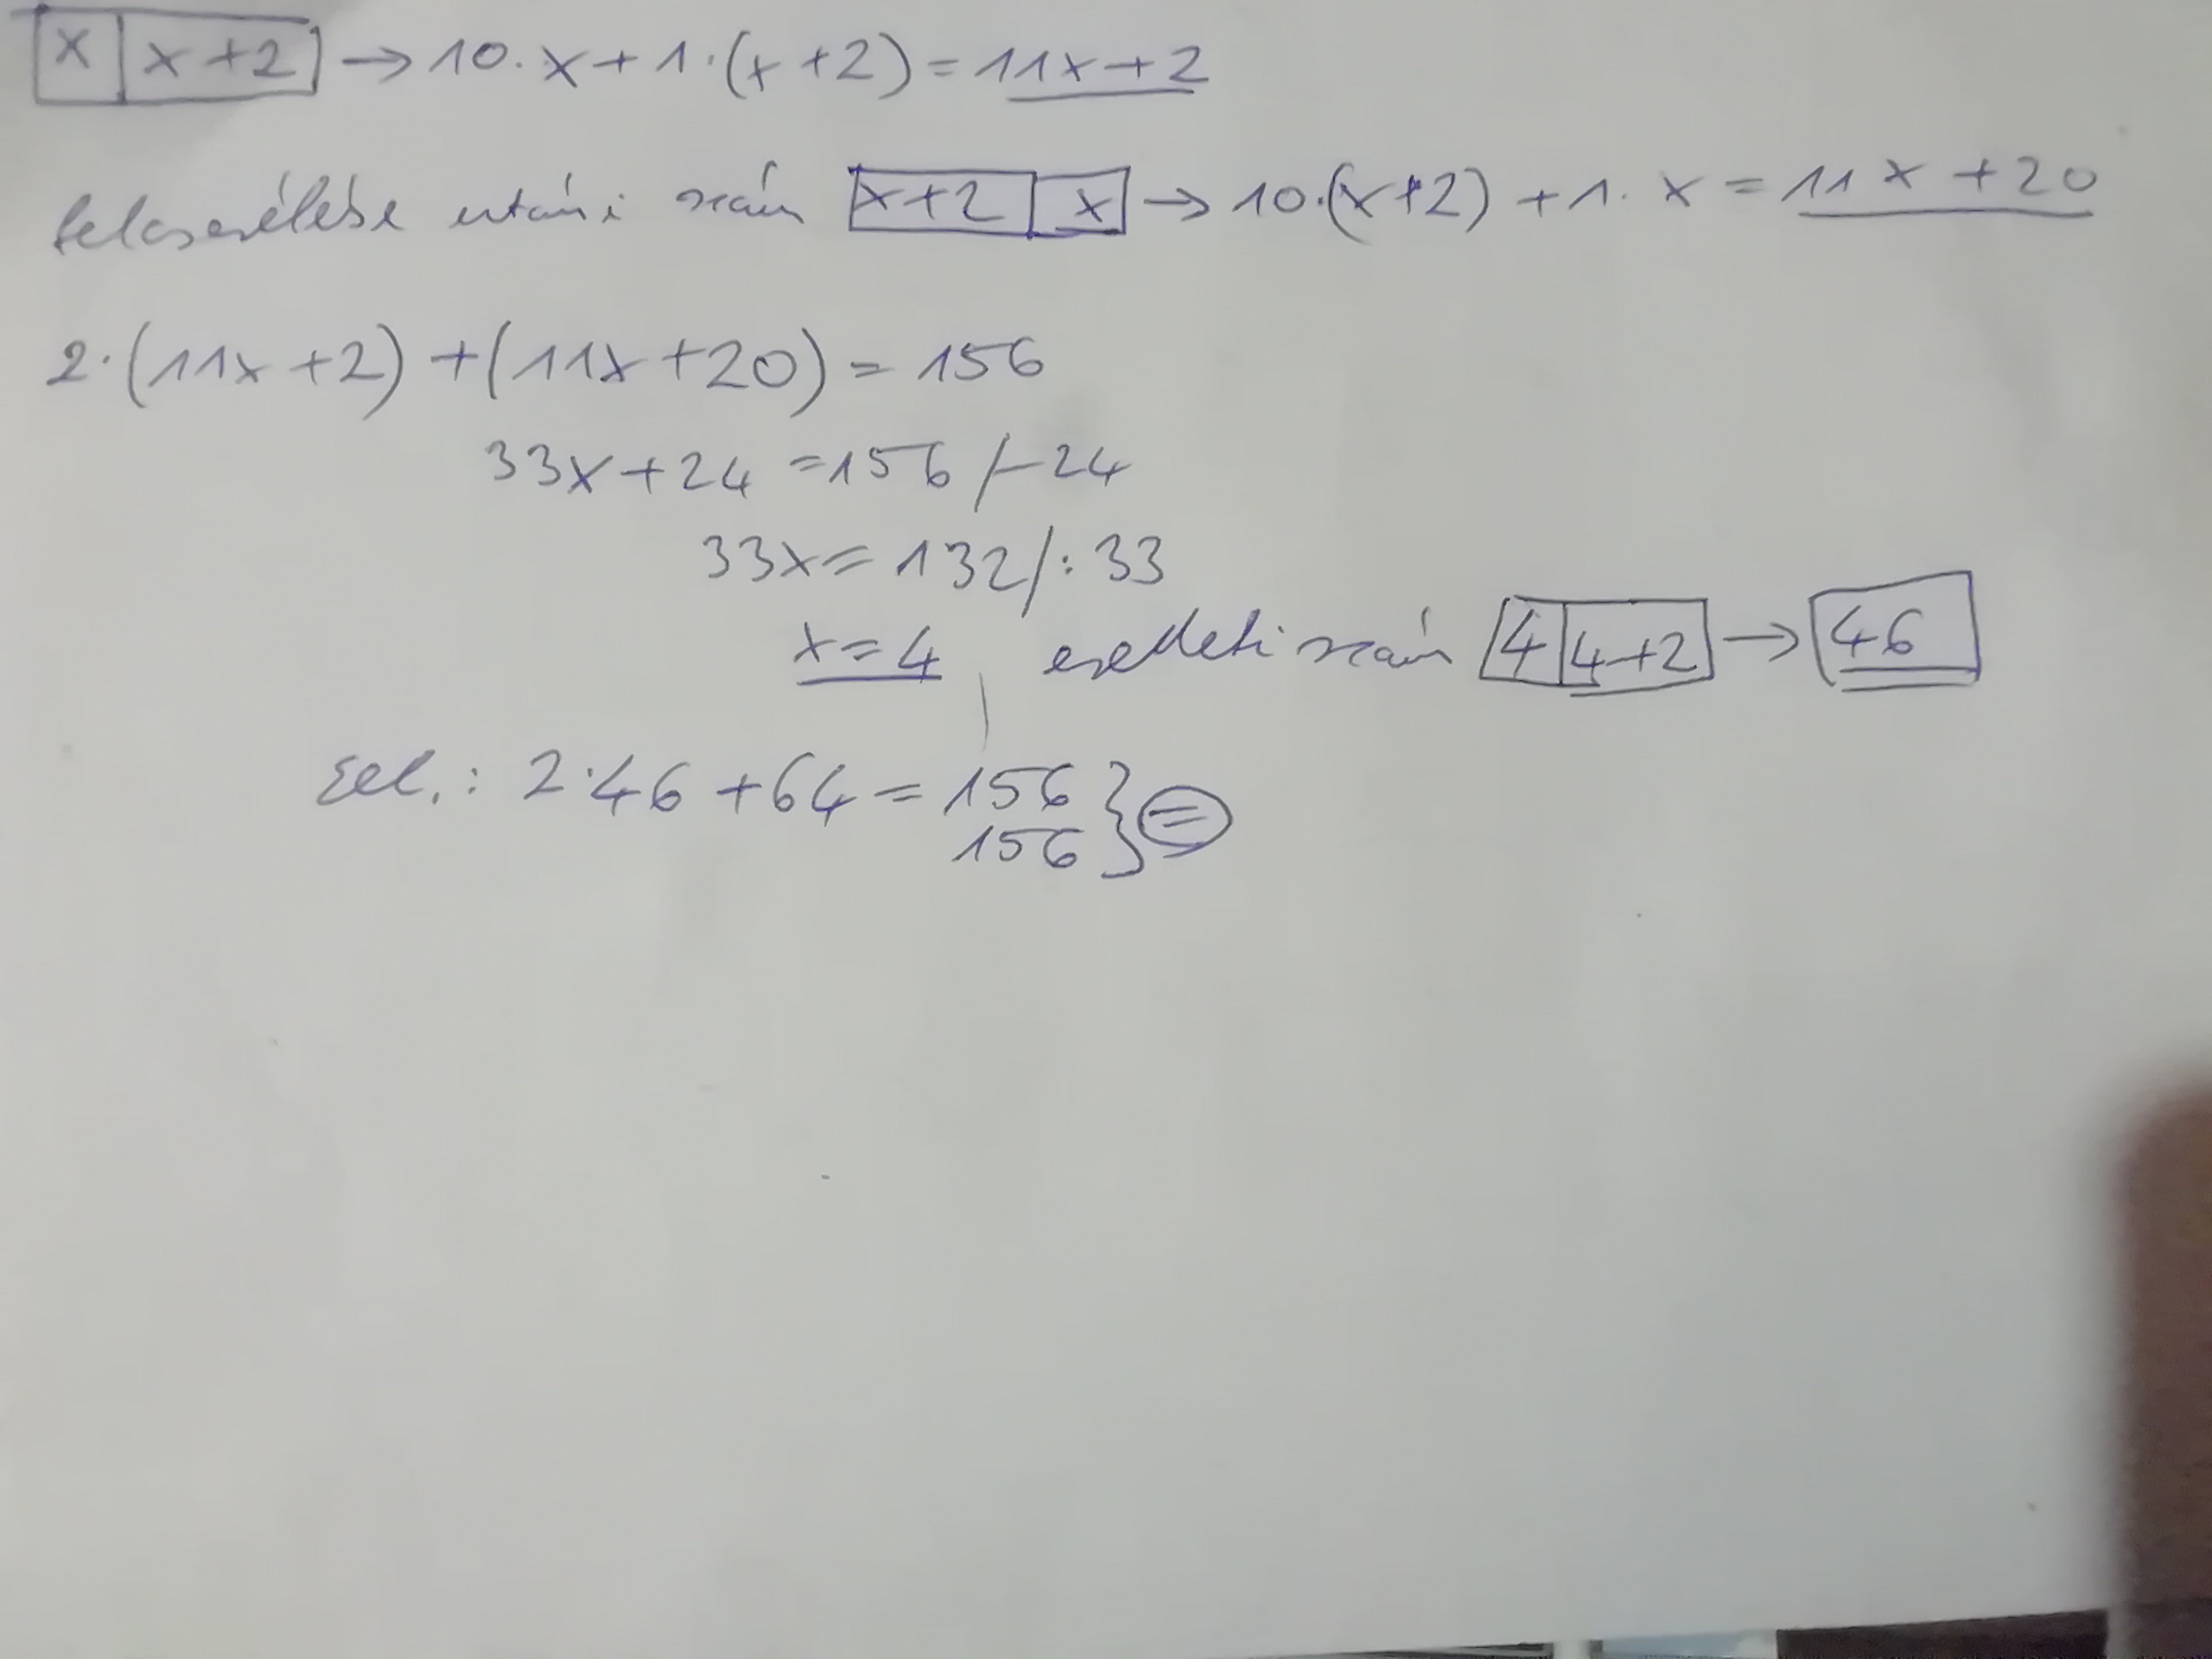 x | x+2 → 10·x+1·(x+2)=11x+2
felcserélése utáni szám x+2 | x → 10·(x+2)+1·x=11x+20
2·(11x+2)+(11x+20)=156
33x+24=156/-24
33x=132/:33
x=4, eredeti szám 4|4+2 → 46
Ell.: 2·46+64=156
156 } =